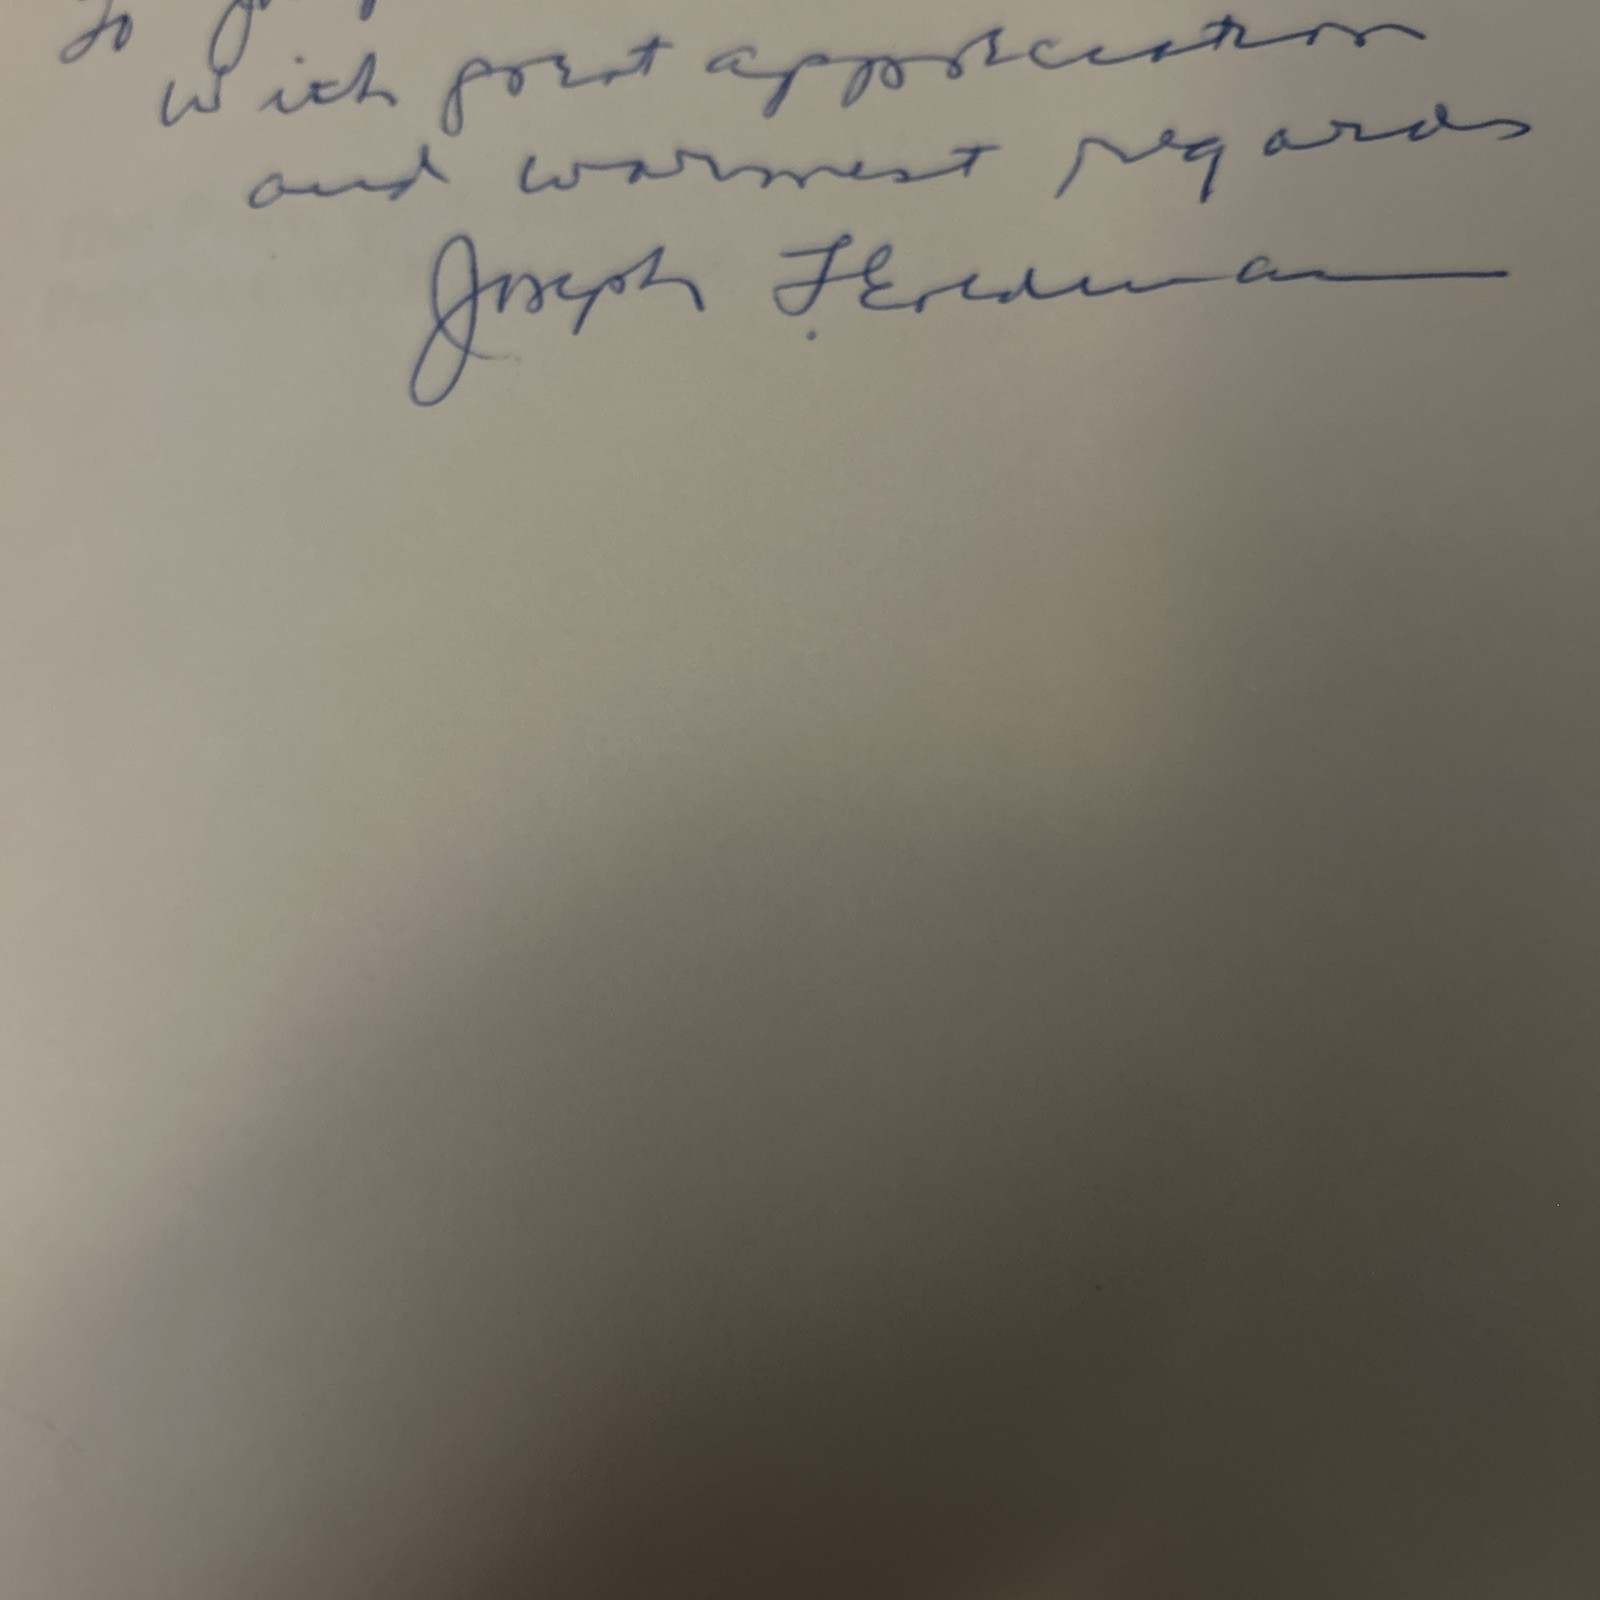 To
With great appreciation
and warmest regards
Joseph